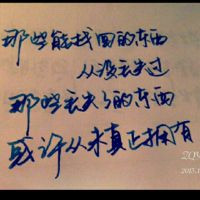 那些能找回的东西
从没丢失过
那些丢失了的东西
或许从未真正拥有